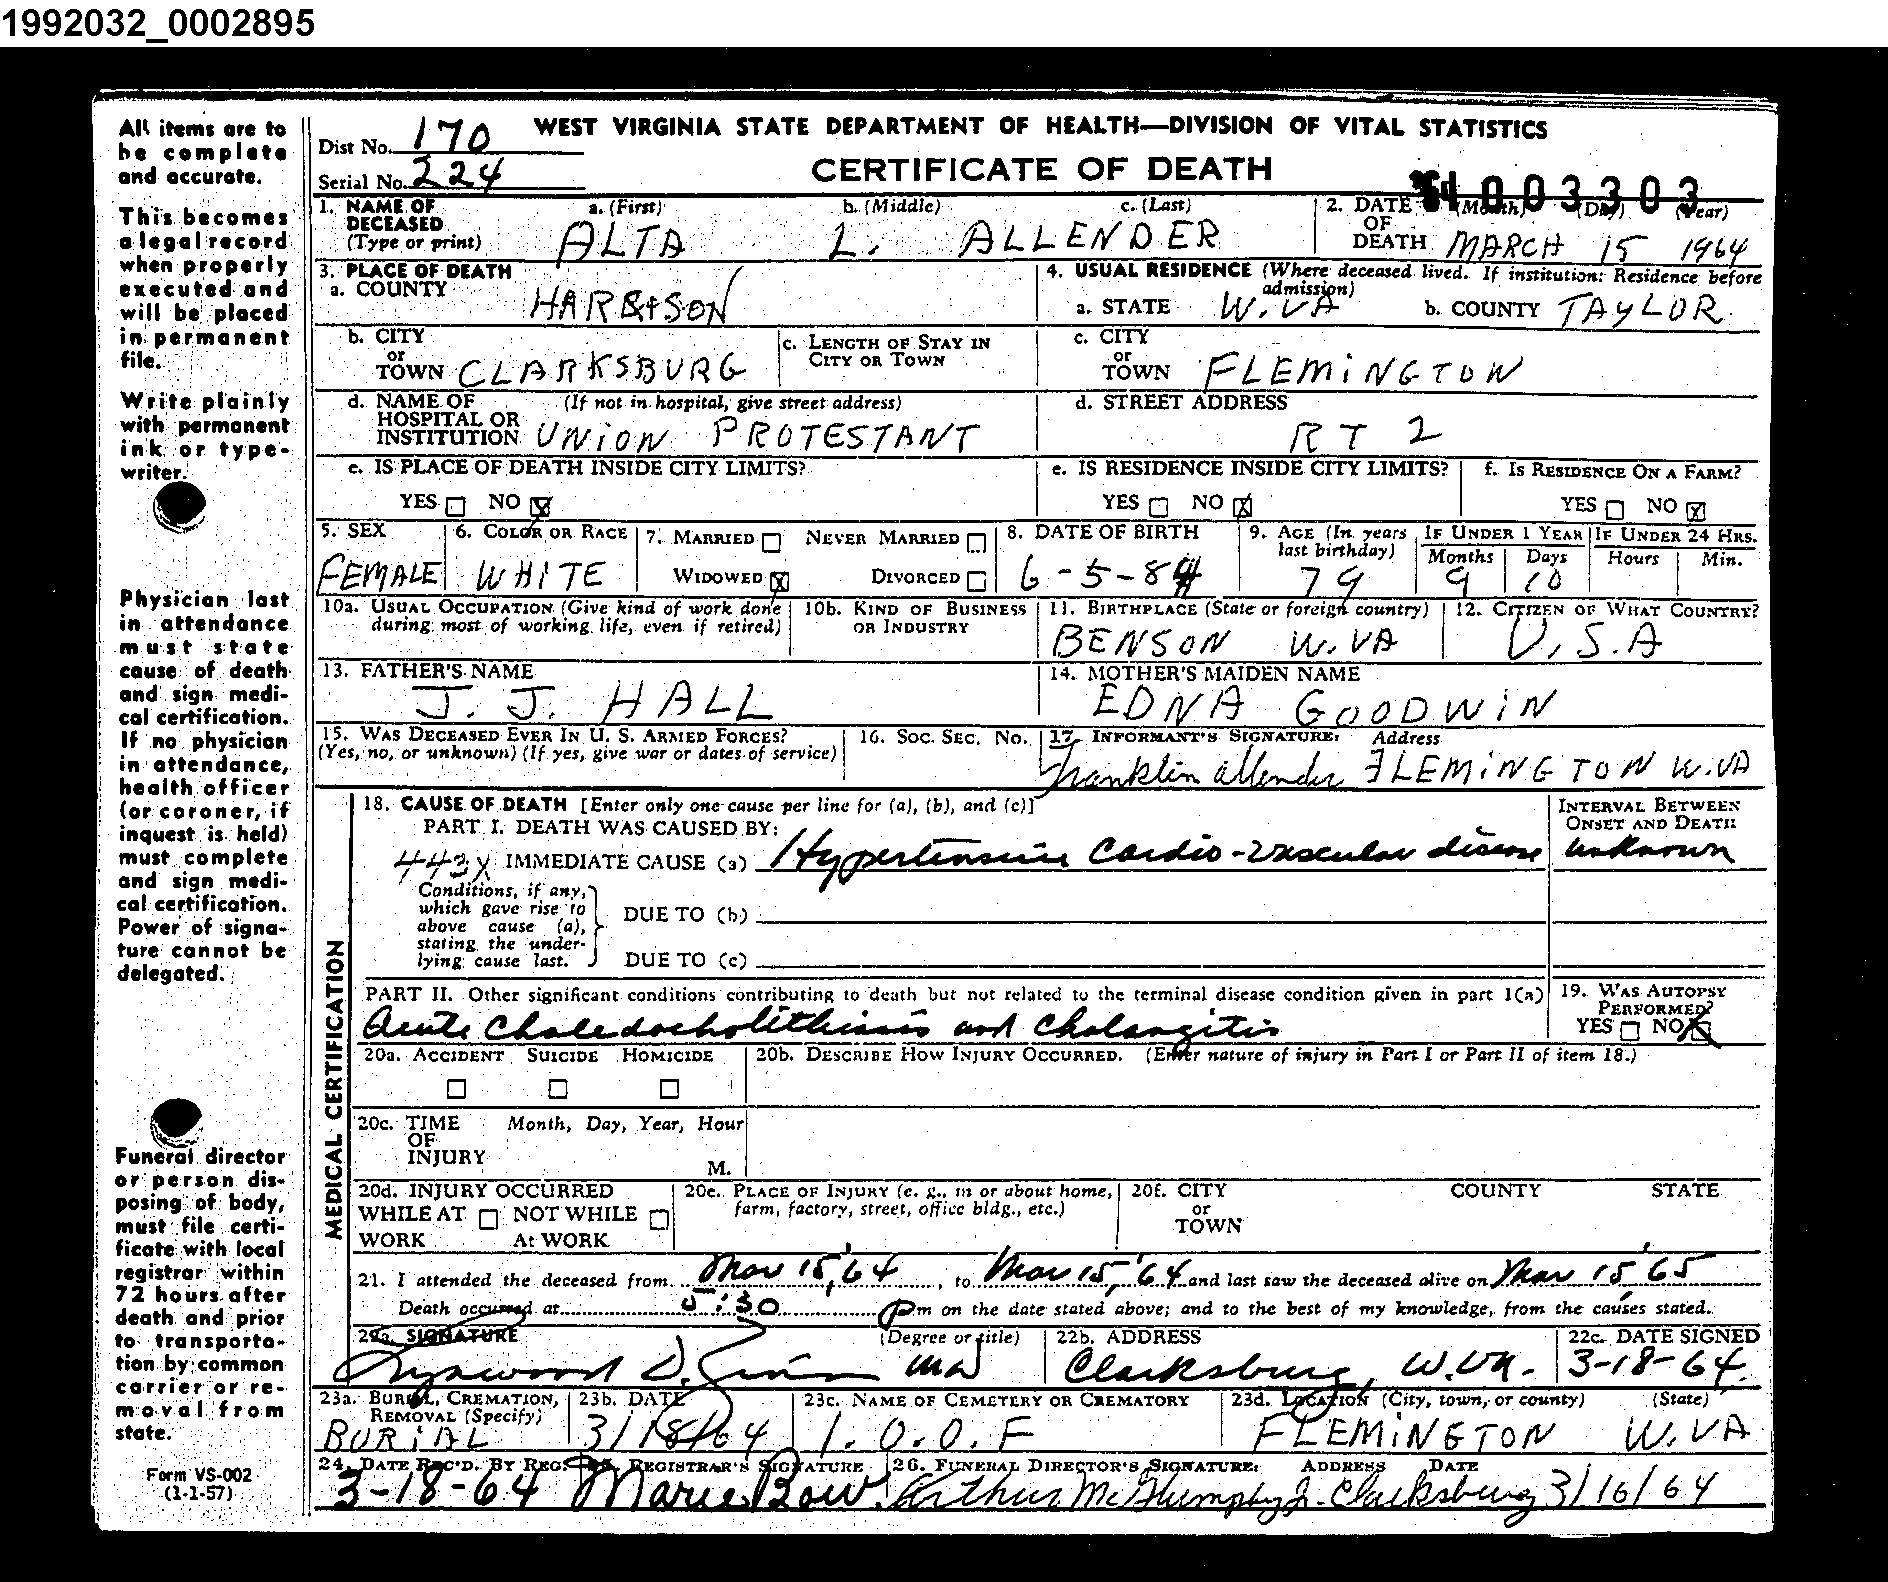 1992032_0002895
All items are to
be complete
and accurate.
This becomes
a legal record
when properly
executed and
will be placed
in permanent
file.
Write plainly
with permanent
ink or type-
writer.
Physician last
in attendance
must state
cause of death
and sign medi-
cal certification.
If no physician
in attendance,
health officer
(or coroner, if
inquest is held)
must complete
and sign medi-
cal certification.
Power of signa-
ture cannot be
delegated.
Funeral director
or person dis-
posing of body,
must file certi-
ficate with local
registrar within
72 hours after
death and prior
to transporta-
tion by common
carrier or re-
moval from
state.
Form VS-002
(1-1-57)
Dist No. 170
Serial No. 224
WEST VIRGINIA STATE DEPARTMENT OF HEALTH—DIVISION OF VITAL STATISTICS
CERTIFICATE OF DEATH
64 003303
1. NAME OF DECEASED (Type or print) a. (First) b. (Middle) c. (Last)
ALTA L. ALLENDER
2. DATE OF DEATH (Month) (Day) (Year)
MARCH 15 1964
3. PLACE OF DEATH
a. COUNTY HARRISON
4. USUAL RESIDENCE (Where deceased lived. If institution: Residence before admission)
a. STATE W.VA b. COUNTY TAYLOR
b. CITY or TOWN CLARKSBURG
c. LENGTH OF STAY IN CITY OR TOWN
c. CITY or TOWN FLEMINGTON
d. NAME OF HOSPITAL OR INSTITUTION (If not in hospital, give street address)
UNION PROTESTANT
d. STREET ADDRESS
RT 2
e. IS PLACE OF DEATH INSIDE CITY LIMITS?
YES NO X
e. IS RESIDENCE INSIDE CITY LIMITS?
YES NO X
f. IS RESIDENCE ON A FARM?
YES NO X
5. SEX FEMALE
6. COLOR OR RACE WHITE
7. MARRIED NEVER MARRIED
WIDOWED X DIVORCED
8. DATE OF BIRTH
6-5-84
9. AGE (In years last birthday) 79
IF UNDER 1 YEAR Months 9 Days 10
IF UNDER 24 HRS. Hours Min.
10a. USUAL OCCUPATION (Give kind of work done during most of working life, even if retired)
10b. KIND OF BUSINESS OR INDUSTRY
11. BIRTHPLACE (State or foreign country)
BENSON W.VA
12. CITIZEN OF WHAT COUNTRY?
U.S.A
13. FATHER'S NAME
J. J. HALL
14. MOTHER'S MAIDEN NAME
EDNA GOODWIN
15. WAS DECEASED EVER IN U. S. ARMED FORCES?
(Yes, no, or unknown) (If yes, give war or dates of service)
16. SOC. SEC. NO.
17. INFORMANT'S SIGNATURE: Address
Franklin Allender FLEMINGTON W.VA
MEDICAL CERTIFICATION
18. CAUSE OF DEATH [Enter only one cause per line for (a), (b), and (c)]
PART I. DEATH WAS CAUSED BY:
443X IMMEDIATE CAUSE (a) Hypertensive Cardio-vascular disease
INTERVAL BETWEEN ONSET AND DEATH
unknown
Conditions, if any,
which gave rise to
above cause (a),
stating the under-
lying cause last.
DUE TO (b)
DUE TO (c)
PART II. Other significant conditions contributing to death but not related to the terminal disease condition given in part 1(a)
Acute Choledocholithiasis and Cholangitis
19. WAS AUTOPSY PERFORMED?
YES NO X
20a. ACCIDENT SUICIDE HOMICIDE
20b. DESCRIBE HOW INJURY OCCURRED. (Enter nature of injury in Part I or Part II of item 18.)
20c. TIME OF INJURY Month, Day, Year, Hour
M.
20d. INJURY OCCURRED
WHILE AT WORK NOT WHILE At WORK
20e. PLACE OF INJURY (e. g., in or about home, farm, factory, street, office bldg., etc.)
20f. CITY or TOWN COUNTY STATE
21. I attended the deceased from Mar 15, '64, to Mar 15, '64 and last saw the deceased alive on Mar 15, '65
Death occurred at 5:30 Pm on the date stated above; and to the best of my knowledge, from the causes stated.
22a. SIGNATURE (Degree or title)
Lynwood D. MD
22b. ADDRESS
Clarksburg, W.VA.
22c. DATE SIGNED
3-18-64
23a. BURIAL, CREMATION, REMOVAL (Specify)
BURIAL
23b. DATE
3/18/64
23c. NAME OF CEMETERY OR CREMATORY
I.O.O.F
23d. LOCATION (City, town, or county) (State)
FLEMINGTON W.VA
24. DATE REC'D. BY REG.
3-18-64
25. REGISTRAR'S SIGNATURE
Marie Bow
26. FUNERAL DIRECTOR'S SIGNATURE: ADDRESS DATE
Arthur McGlumphy Jr. Clarksburg 3/16/64